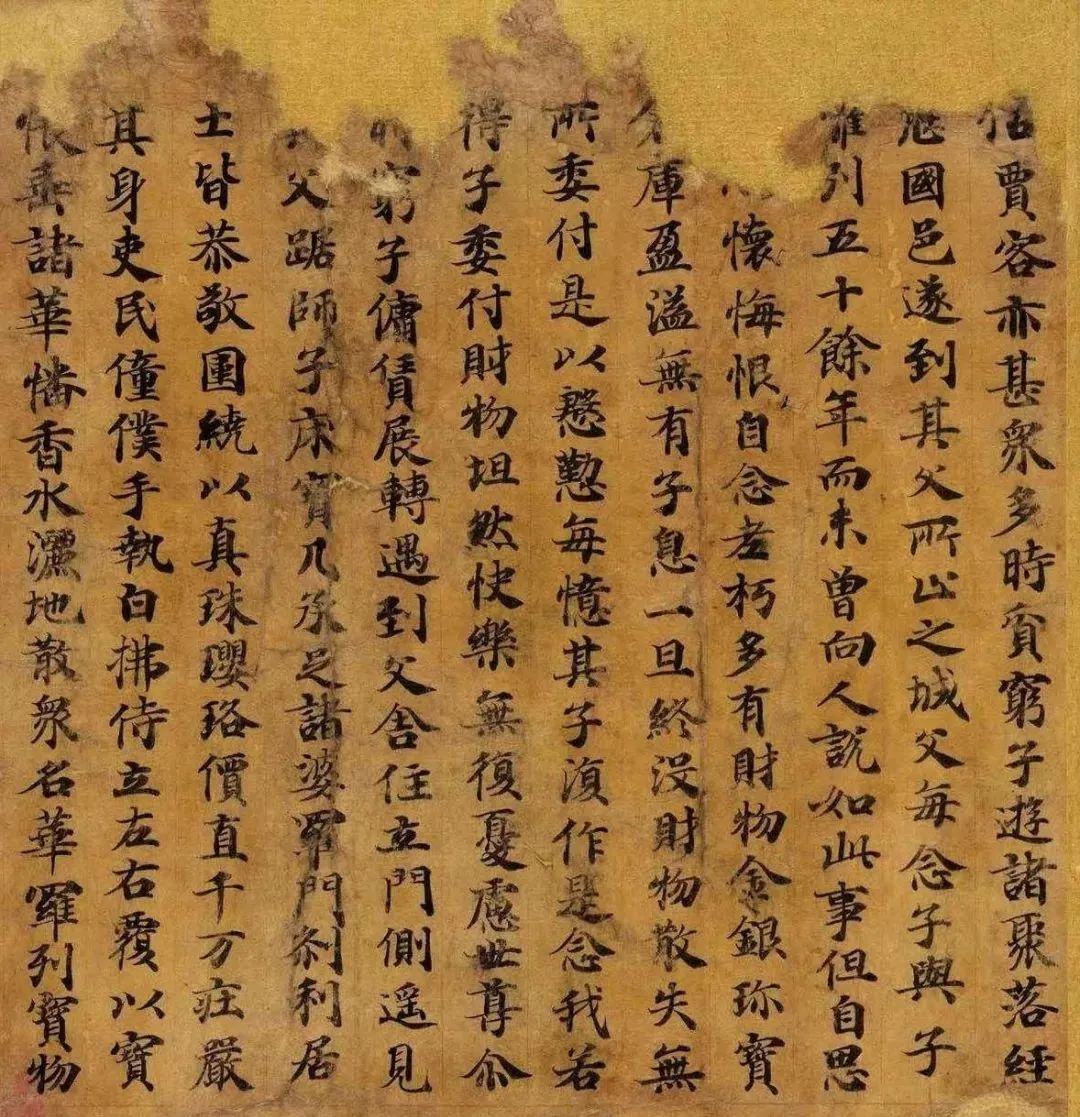 估賈客亦甚眾多時貧窮子遊諸聚落經
國邑遂到其父所止之城父每念子與子
離列五十餘年而未曾向人說如此事但自思
懷悔恨自念老朽多有財物金銀珎寶
庫盈溢無有子息一旦終沒財物散失無
所委付是以慇懃每憶其子復作是念我若
得子委付財物坦然快樂無復憂慮世尊尒
窮子傭賃展轉遇到父舍住立門側遥見
父踞師子床寶几承足諸婆羅門刹利居
士皆恭敬圍繞以真珠瓔珞價直千万莊嚴
其身吏民僮僕手執白拂侍立左右覆以寶
帳垂諸華幡香水灑地散眾名華羅列寶物